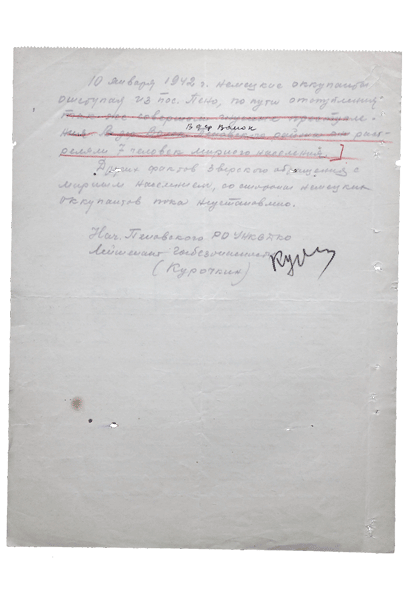 10 января 1942 г. немецкие оккупанты
отступая из пос. Пено, по пути отступления
так же совершили
в дер Волок
района рас-
стреляли 7 человек мирного населения.]
Других фактов зверского обращения с
мирным населением, со стороны немецких
оккупантов пока неустановлено.
Нач. Пеновского РО УНКВД КО
Лейтенант Госбезопасности
(Курочкин)